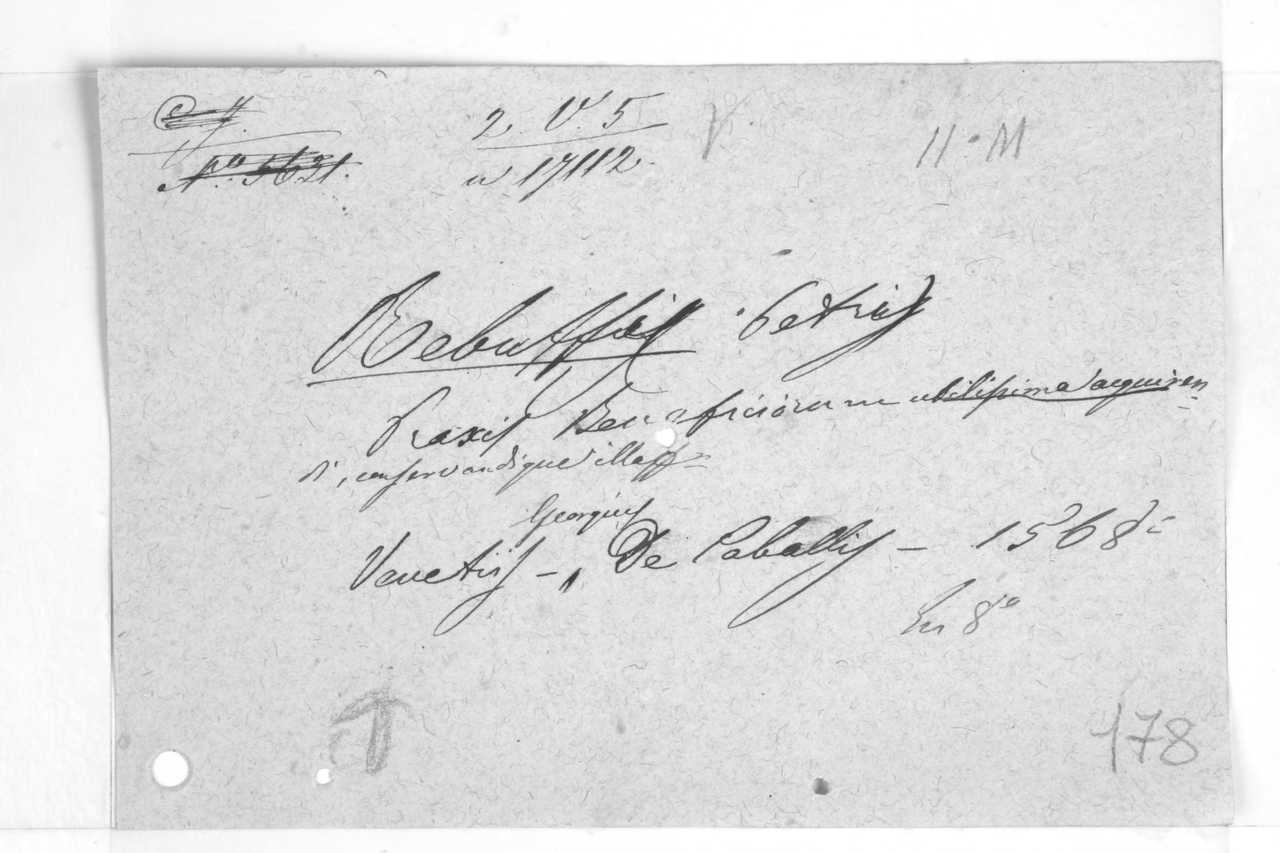 2. V. 5
V.
11. M
n 17112.
Rebuffus Petrus
Praxis Beneficiorum utilissima acquiren
di, conservandique illa
Georgius
Venetiis – De Caballis – 1568
In 8º
178